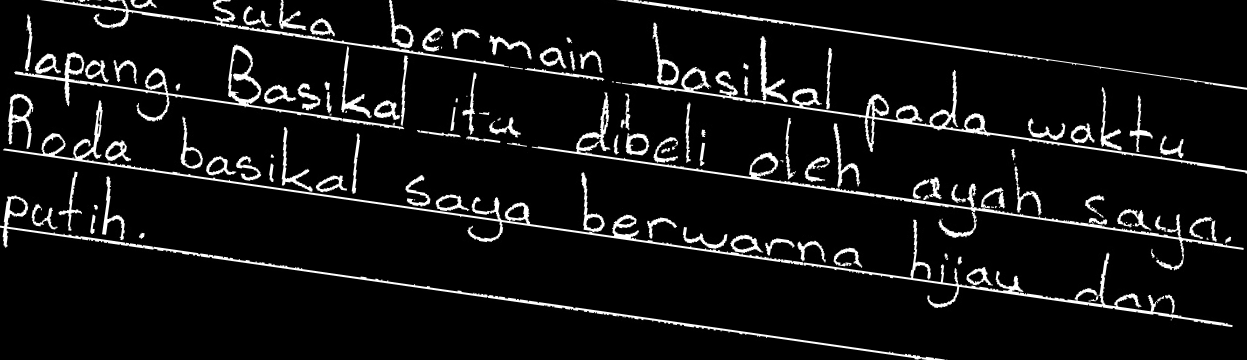 suka bermain basikal pada waktu
lapang. Basikal itu dibeli oleh ayah saya.
Roda basikal saya berwarna hijau dan
putih.